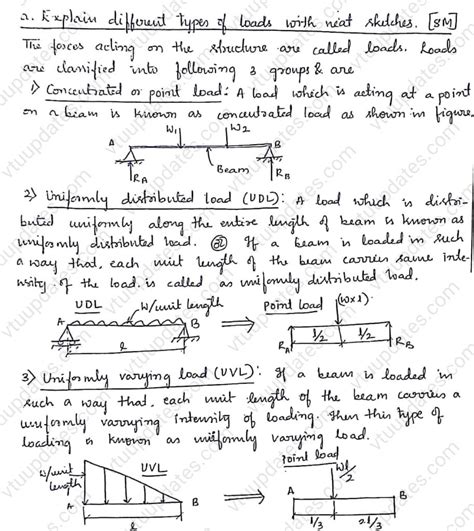 2. Explain different types of loads with neat sketches. [8M]
The forces acting on the structure are called loads. Loads
are classified into following 3 groups & are
1) Concentrated or point load: A load which is acting at a point
on a beam is known as concentrated load as shown in figure.
W1 W2
A B
Beam
RA RB
2) Uniformly distributed load (UDL): A load which is distri-
buted uniformly along the entire length of beam is known as
uniformly distributed load. OR If a beam is loaded in such
a way that, each unit length of the beam carries same inte-
nsity of the load, is called as uniformly distributed load.
UDL W/unit length Point load (W×l)
A B
l
l/2 l/2
RA RB
3) Uniformly varying load (UVL): If a beam is loaded in
such a way that, each unit length of the beam carries a
uniformly varying intensity of loading. Then this type of
loading is known as uniformly varying load.
W/unit length UVL
A B
l
Point load
Wl/2
A B
l/3 2l/3
vtuupdates.com